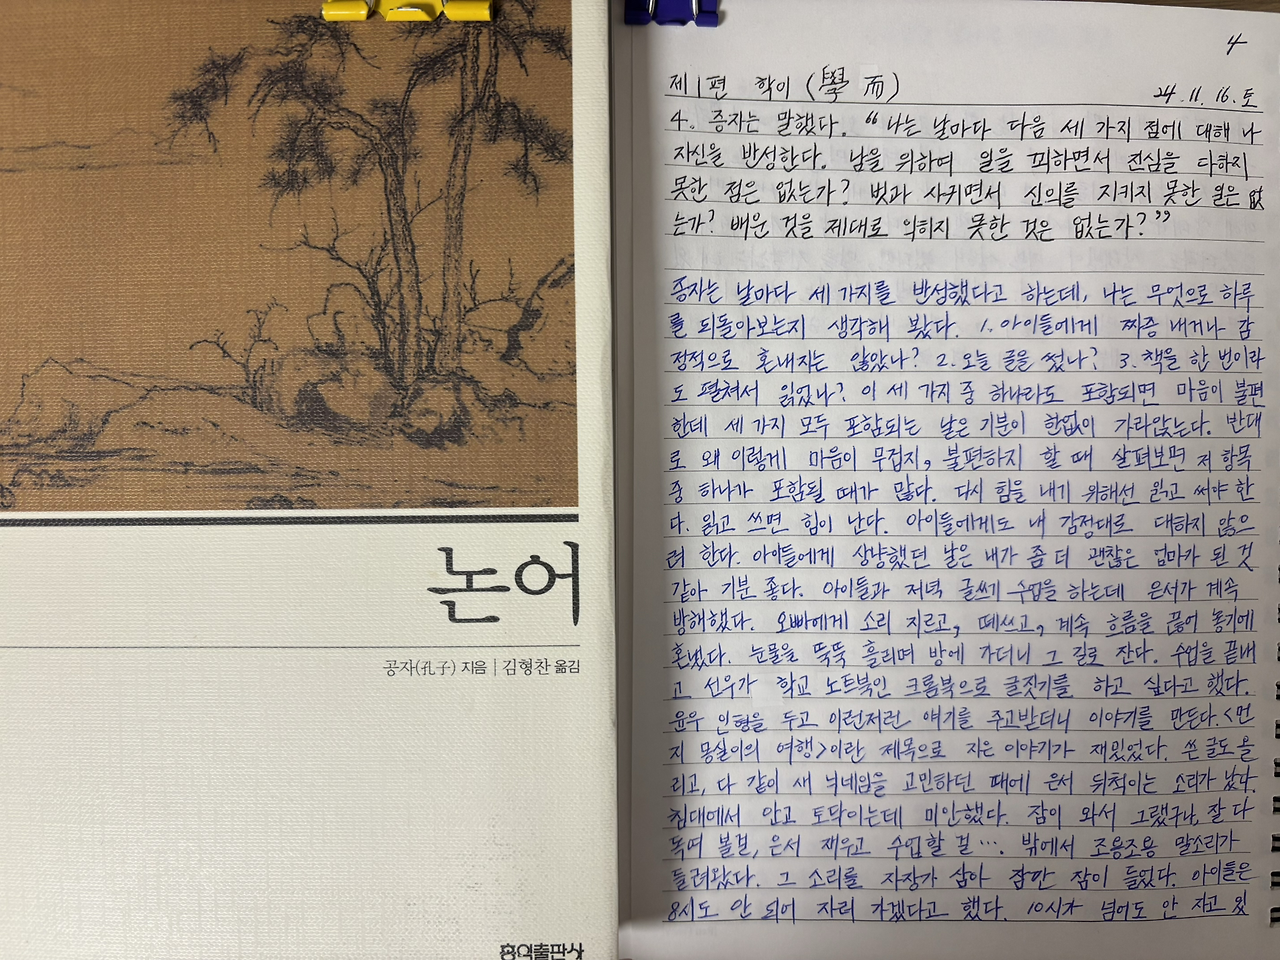 논어
공자(孔子) 지음 | 김형찬 옮김
홍익출판사
4
제1편 학이 (學而)
24. 11. 16. 토
4. 증자는 말했다. "나는 날마다 다음 세 가지 점에 대해 나
자신을 반성한다. 남을 위하여 일을 꾀하면서 진심을 다하지
못한 점은 없는가? 벗과 사귀면서 신의를 지키지 못한 일은 없
는가? 배운 것을 제대로 익히지 못한 것은 없는가?"
증자는 날마다 세 가지를 반성했다고 하는데, 나는 무엇으로 하루
를 되돌아보는지 생각해 봤다. 1. 아이들에게 짜증 내거나 감
정적으로 혼내지는 않았나? 2. 오늘 글을 썼나? 3. 책을 한 번이라
도 펼쳐서 읽었나? 이 세 가지 중 하나라도 포함되면 마음이 불편
한데 세 가지 모두 포함되는 날은 기분이 한없이 가라앉는다. 반대
로 왜 이렇게 마음이 무겁지, 불편하지 할 때 살펴보면 저 항목
중 하나가 포함될 때가 많다. 다시 힘을 내기 위해선 읽고 써야 한
다. 읽고 쓰면 힘이 난다. 아이들에게도 내 감정대로 대하지 않으
려 한다. 아이들에게 상냥했던 날은 내가 좀 더 괜찮은 엄마가 된 것
같아 기분 좋다. 아이들과 저녁 글쓰기 수업을 하는데 은서가 계속
방해했다. 오빠에게 소리 지르고, 떼쓰고, 계속 흐름을 끊어 놓기에
혼냈다. 눈물을 뚝뚝 흘리며 방에 가더니 그 길로 잔다. 수업을 끝내
고 선우가 학교 노트북인 크롬북으로 글짓기를 하고 싶다고 했다.
윤우 인형을 두고 이런저런 얘기를 주고받더니 이야기를 만든다. <먼
지 몽실이의 여행>이란 제목으로 지은 이야기가 재밌었다. 쓴 글도 올
리고, 다 같이 새 닉네임을 고민하던 때에 은서 뒤척이는 소리가 났다.
침대에서 안고 토닥이는데 미안했다. 잠이 와서 그랬구나, 잘 다
독여 볼걸, 은서 재우고 수업할 걸…. 밖에서 조용조용 말소리가
들려왔다. 그 소리를 자장가 삼아 잠깐 잠이 들었다. 아이들은
8시도 안 되어 자러 가겠다고 했다. 10시가 넘어도 안 자고 있